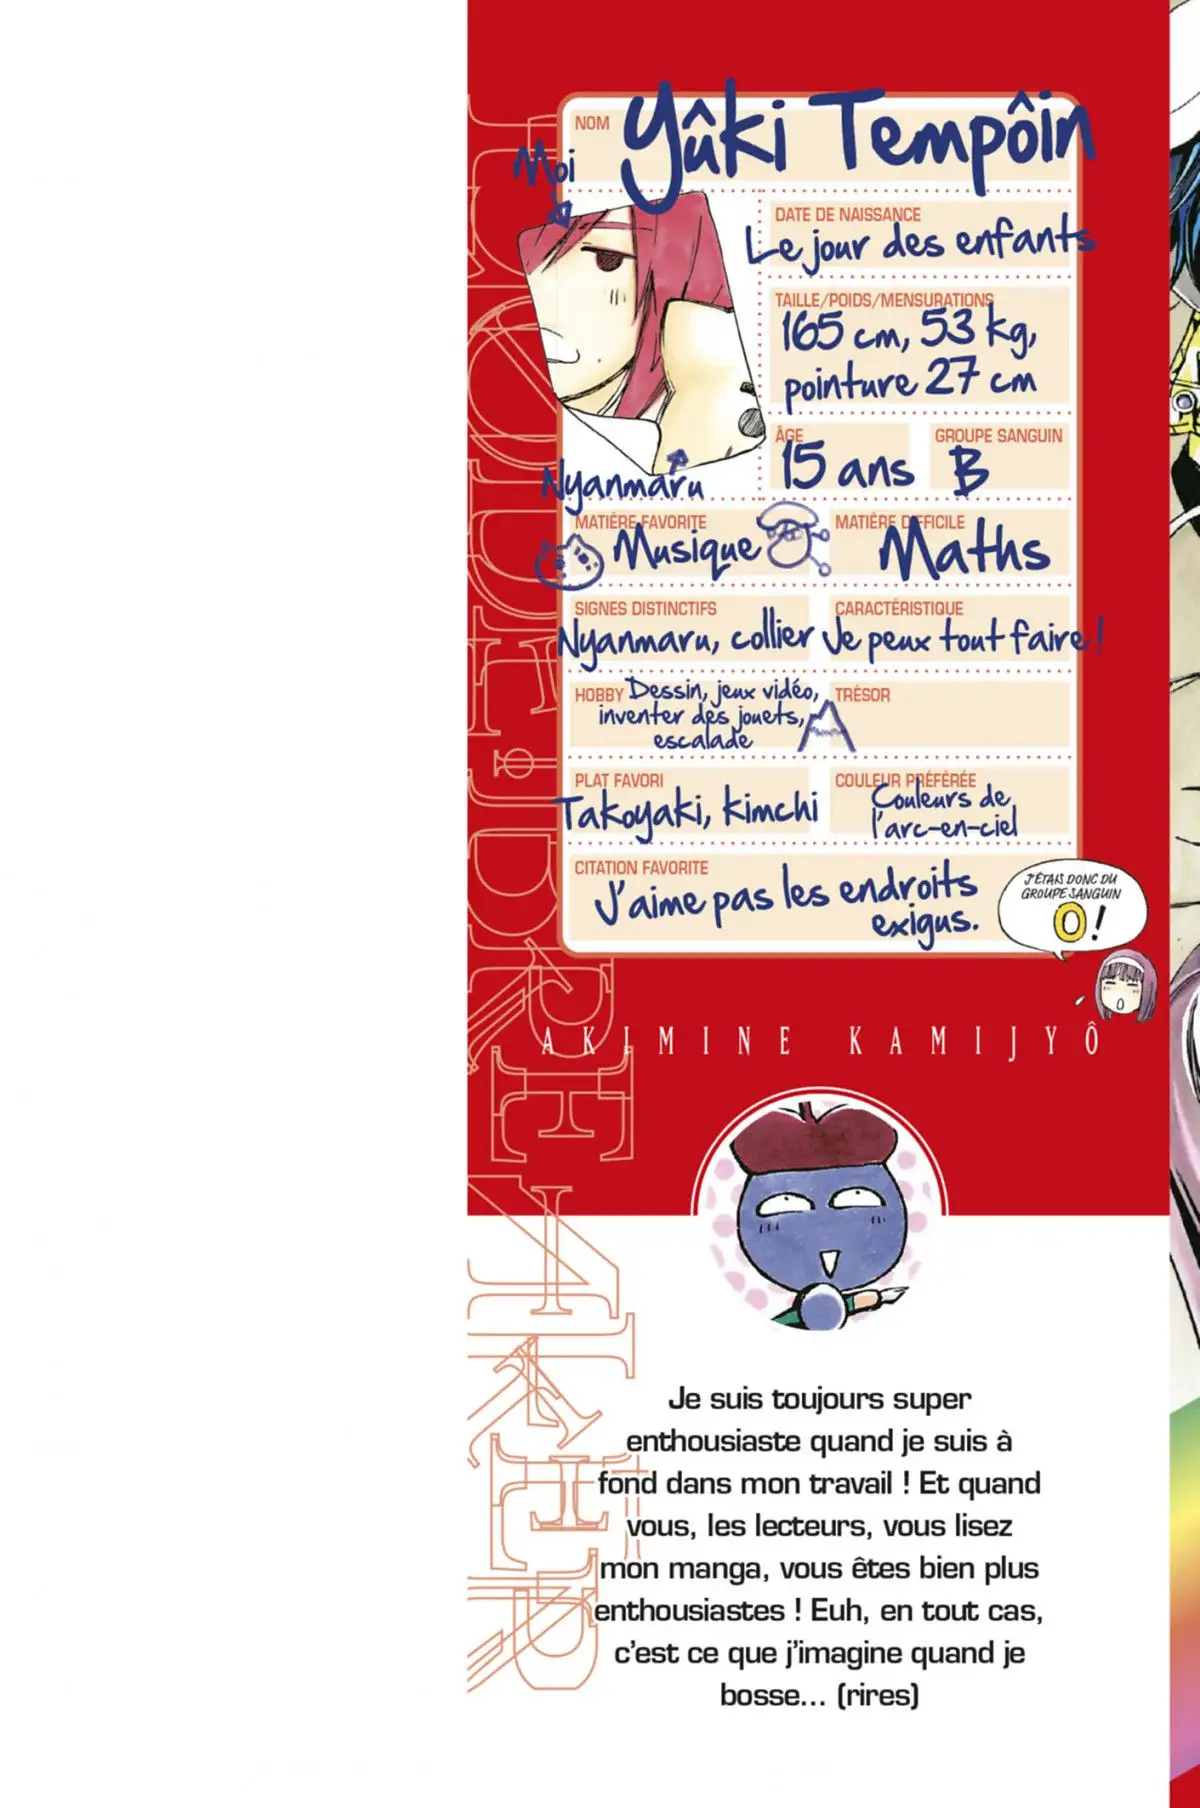 NOM
Yûki Tempôin
Moi
DATE DE NAISSANCE
Le jour des enfants
TAILLE/POIDS/MENSURATIONS
165 cm, 53 kg,
pointure 27 cm
ÂGE
15 ans
GROUPE SANGUIN
B
Nyanmaru
MATIÈRE FAVORITE
Musique
MATIÈRE DIFFICILE
Maths
SIGNES DISTINCTIFS
Nyanmaru, collier
CARACTÉRISTIQUE
Je peux tout faire !
HOBBY
Dessin, jeux vidéo,
inventer des jouets,
escalade
TRÉSOR
PLAT FAVORI
Takoyaki, kimchi
COULEUR PRÉFÉRÉE
Couleurs de
l'arc-en-ciel
CITATION FAVORITE
J'aime pas les endroits
exigus.
J'ÉTAIS DONC DU
GROUPE SANGUIN
O !
AKIMINE KAMIJYÔ
CODE:BREAKER
Je suis toujours super
enthousiaste quand je suis à
fond dans mon travail ! Et quand
vous, les lecteurs, vous lisez
mon manga, vous êtes bien plus
enthousiastes ! Euh, en tout cas,
c'est ce que j'imagine quand je
bosse... (rires)